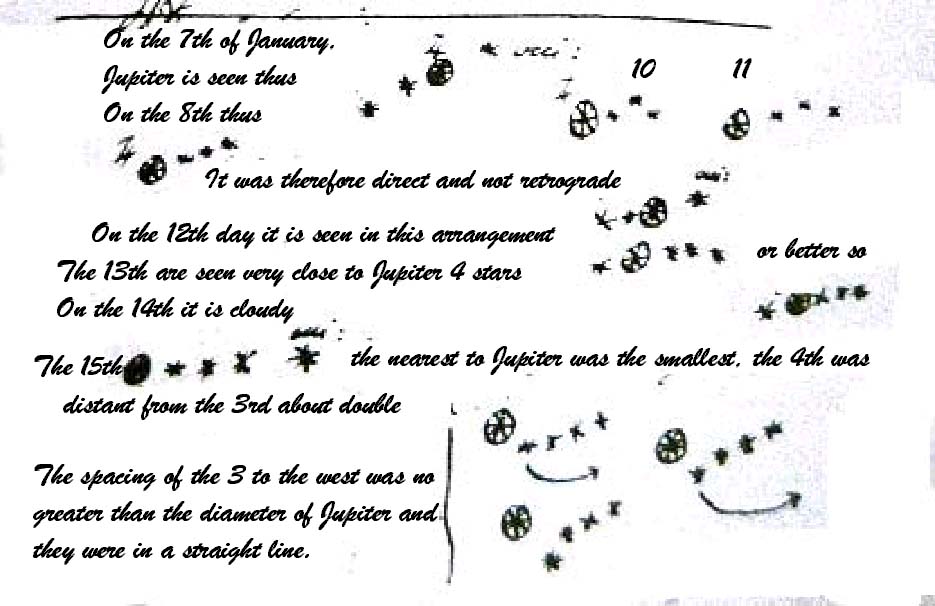 On the 7th of January.
Jupiter is seen thus
On the 8th thus
10 11
It was therefore direct and not retrograde
On the 12th day it is seen in this arrangement
The 13th are seen very close to Jupiter 4 stars
or better so
On the 14th it is cloudy
The 15th the nearest to Jupiter was the smallest. the 4th was
distant from the 3rd about double
The spacing of the 3 to the west was no
greater than the diameter of Jupiter and
they were in a straight line.